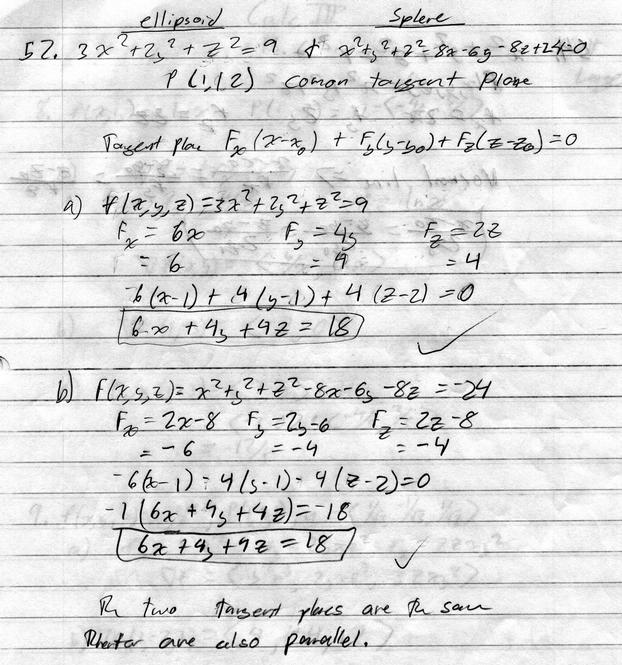 ellipsoid Sphere
52. 3x²+2y²+z²=9 & x²+y²+z²-8x-6y-8z+24=0
P(1,1,2) comon tangent plane
Tangent plane Fx(x-x₀) + Fy(y-y₀) + Fz(z-z₀)=0
a) F(x,y,z)=3x²+2y²+z²=9
Fx = 6x Fy = 4y Fz = 2z
= 6 = 4 = 4
6(x-1) + 4(y-1) + 4(z-2) =0
6x + 4y + 4z = 18 ✓
b) F(x,y,z)= x²+y²+z²-8x-6y-8z =-24
Fx = 2x-8 Fy = 2y-6 Fz = 2z-8
= -6 = -4 = -4
-6(x-1) - 4(y-1) - 4(z-2)=0
-1(6x + 4y + 4z)=-18
6x + 4y + 4z = 18 ✓
The two tangent planes are the same
are also parallel.